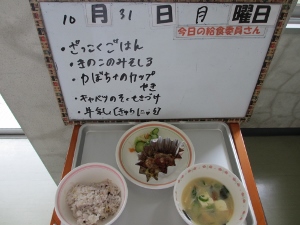 10月31日 月曜日
今日の給食委員さん
・ざっこくごはん
・きのこのみそしる
・かぼちゃのカップやき
・キャベツのそくせきづけ
・牛乳